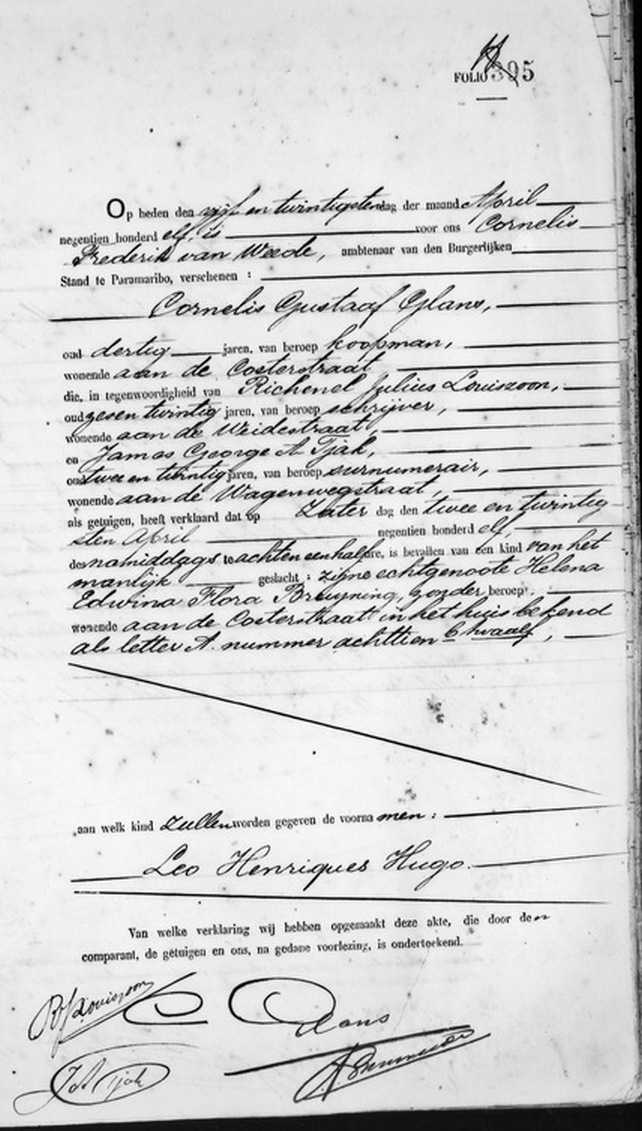 FOLIO 395
Op heden den vijf en twintigsten dag der maand April
negentien honderd elf, is voor ons Cornelis
Frederik van Weede, ambtenaar van den Burgerlijken
Stand te Paramaribo, verschenen :
Cornelis Gustaaf Glans,
oud dertig jaren, van beroep koopman,
wonende aan de Costerstraat
die, in tegenwoordigheid van Richenel Julius Louiszoon,
oud zesen twintig jaren, van beroep schrijver,
wonende aan de Weidestraat,
en James George A Tjak,
oud twee en twintig jaren, van beroep surnumerair,
wonende aan de Wagenwegstraat,
als getuigen, heeft verklaard dat op Zater dag den twee en twintig
sten April negentien honderd elf,
des namiddags te achten een half ure, is bevallen van een kind van het
manlijk geslacht : zijne echtgenoote Helena
Edwina Flora Bruyning, zonder beroep,
wonende aan de Costerstraat in het huis bekend
als letter A. nummer achttien b twaalf,
aan welk kind zullen worden gegeven de voorna men :
Leo Henriques Hugo.
Van welke verklaring wij hebben opgemaakt deze akte, die door den
comparant, de getuigen en ons, na gedane voorlezing, is onderteekend.
RJ Louiszoon
C G Glans
JGA Tjak